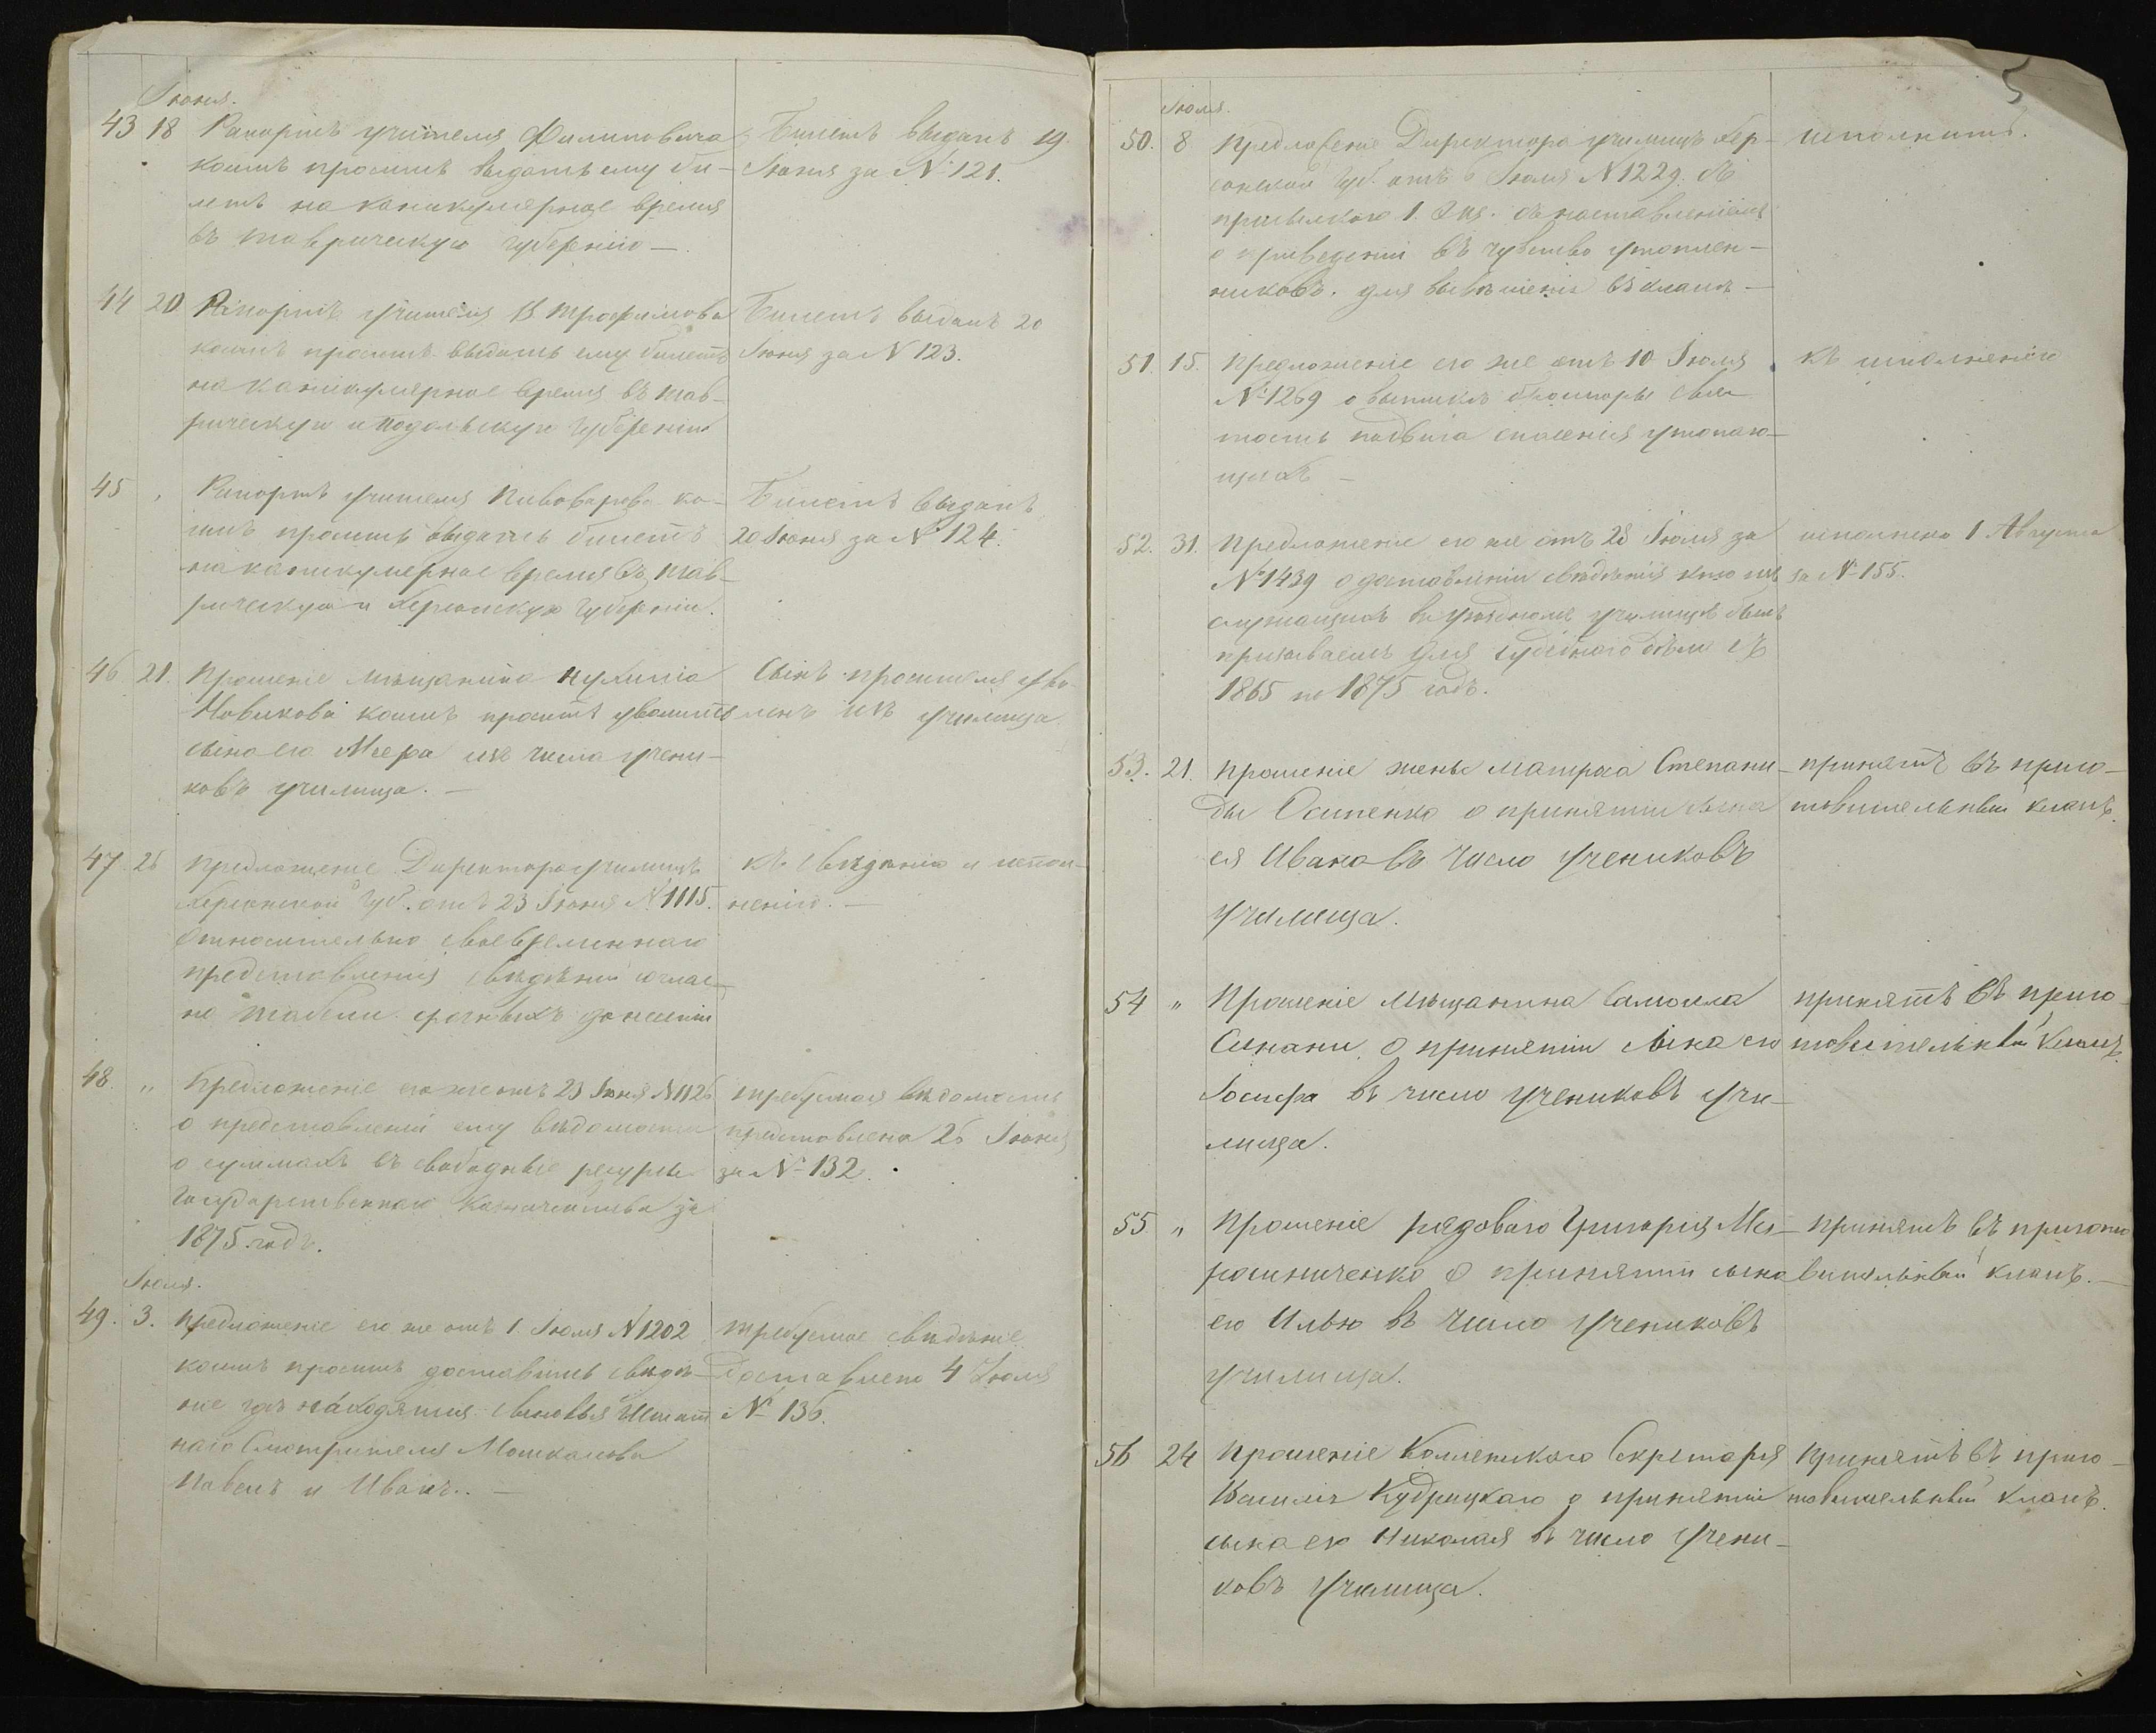 Іюня.
43 18 Рапортъ учителя Филиповича
коимъ проситъ выдать ему би-
летъ на каникулярное время
въ таврическую губернію —
Билетъ выданъ 19
Іюня за № 121.
44 20 Рапортъ учителя В Трофимова
коимъ проситъ выдать ему билетъ
на каникулярное время въ тав-
рическую и Подольскую губерніи
Билетъ выданъ 20
Іюня за № 123.
45 Рапортъ учителя Пивоварова ко-
имъ проситъ выдать билетъ
на каникулярное время въ тав-
рическую и Херсонскую губерніи.
Билетъ выданъ
20 Іюня за № 124.
46 21. Прошеніе мѣщанина Нухима
Новикова коимъ проситъ уволить
сына его Меера изъ числа учени-
ковъ училища. —
Сынъ просителя уво-
ленъ изъ училища
47 26 предложеніе Директора училищъ
Херсонской губ. отъ 23 Іюня № 1115.
относительно своевременнаго
представленія свѣдѣній соглас-
но табели срочныхъ донесеній
къ свѣдѣнію и испол-
ненію. —
48. " Предложеніе его же отъ 23 Іюня № 1126
о представленіи ему вѣдомости
о суммахъ въ свободные ресурсы
Государственнаго Казначейства за
1875 годъ.
требуемая вѣдомость
представлена 26 Іюня
за № 132.
Іюля.
49. 3. предложеніе его же отъ 1 Іюля № 1202
коимъ проситъ доставить свѣдѣ-
ніе гдѣ находятся сыновья Штат
наго Смотрителя Мошкалова
Павелъ и Иванъ. —
требуемое свѣдѣніе
доставлено 4 Іюля
№ 136.
5
Іюля.
50. 8 предложеніе Директора училищъ Хер-
сонской губ. отъ 6 Іюля № 1229. съ
присылкою 1. экз. съ наставленіемъ
о приведеніи въ чувство утоплен-
никовъ. для вывѣшенія въ классѣ —
исполнить.
51. 15. предложеніе его же отъ 10 Іюля
№ 1269 о выпискѣ брошюры
подвига спасенія утопаю-
щихъ —
къ исполненію
52. 31. предложеніе его же отъ 28 Іюля за
№ 1439 о доставленіи свѣдѣнія кто изъ
служащихъ въ уѣздномъ училищѣ былъ
призываемъ для судебнаго дѣла съ
1865 по 1875 годъ.
исполнено 1 Августа
за № 155.
53. 21. прошеніе жены матроса Степани-
ды Осипенко о принятіи сына
ея Ивана въ число учениковъ
училища.
принятъ въ приго-
товительный классъ.
54 " Прошеніе мѣщанина Самоила
Синани о принятіи сына его
Іосифа въ число учениковъ учи-
лища.
принятъ въ приго
товительный классъ.
55 " Прошеніе рядоваго Григорія Ме-
рошниченко о принятіи сына
его Илью въ число учениковъ
училища.
принятъ въ пригото
вительный классъ. —
56 24 прошеніе Коллежскаго Секретаря
Василія Кудрицкаго о принятіи
сына его Николая въ число учени-
ковъ училища.
принятъ въ приго-
товительный классъ.